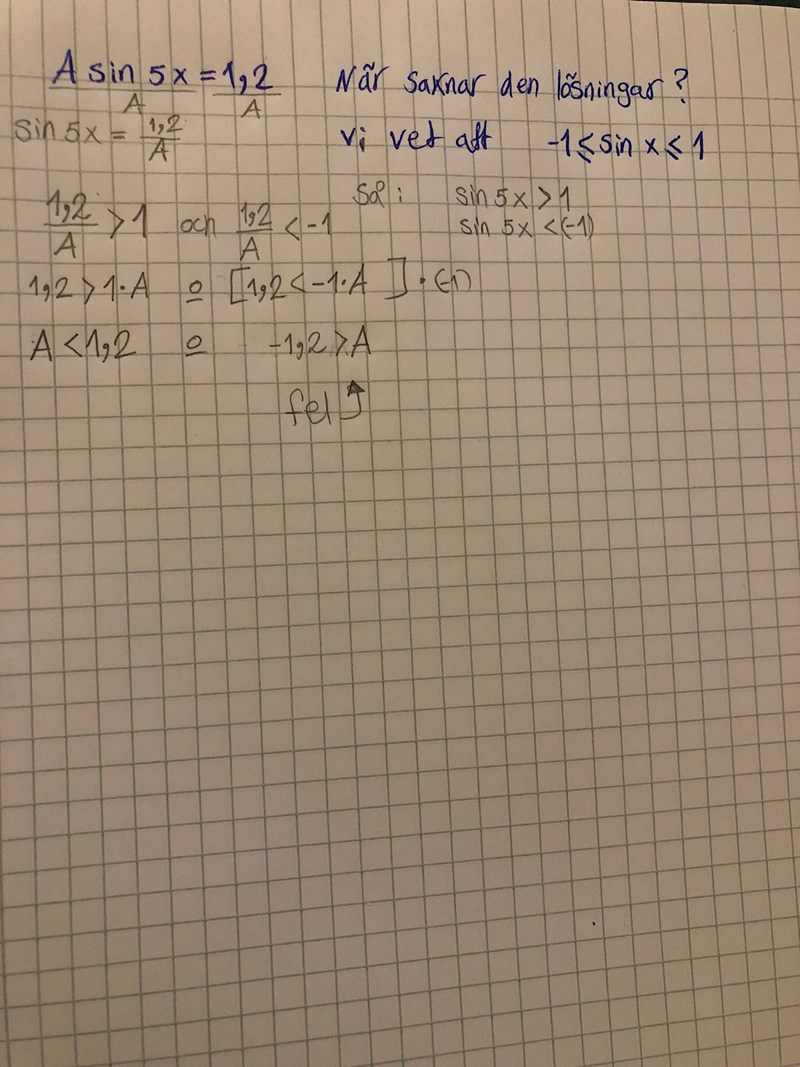 A sin 5x = 1,2 När saknar den lösningar?
A A
sin 5x = 1,2/A vi vet att -1 ≤ sin x ≤ 1
Så: sin 5x > 1
1,2/A > 1 och 1,2/A < -1 sin 5x < (-1)
1,2 > 1·A o [1,2 < -1·A ] · (-1)
A < 1,2 o -1,2 > A
fel ⤴